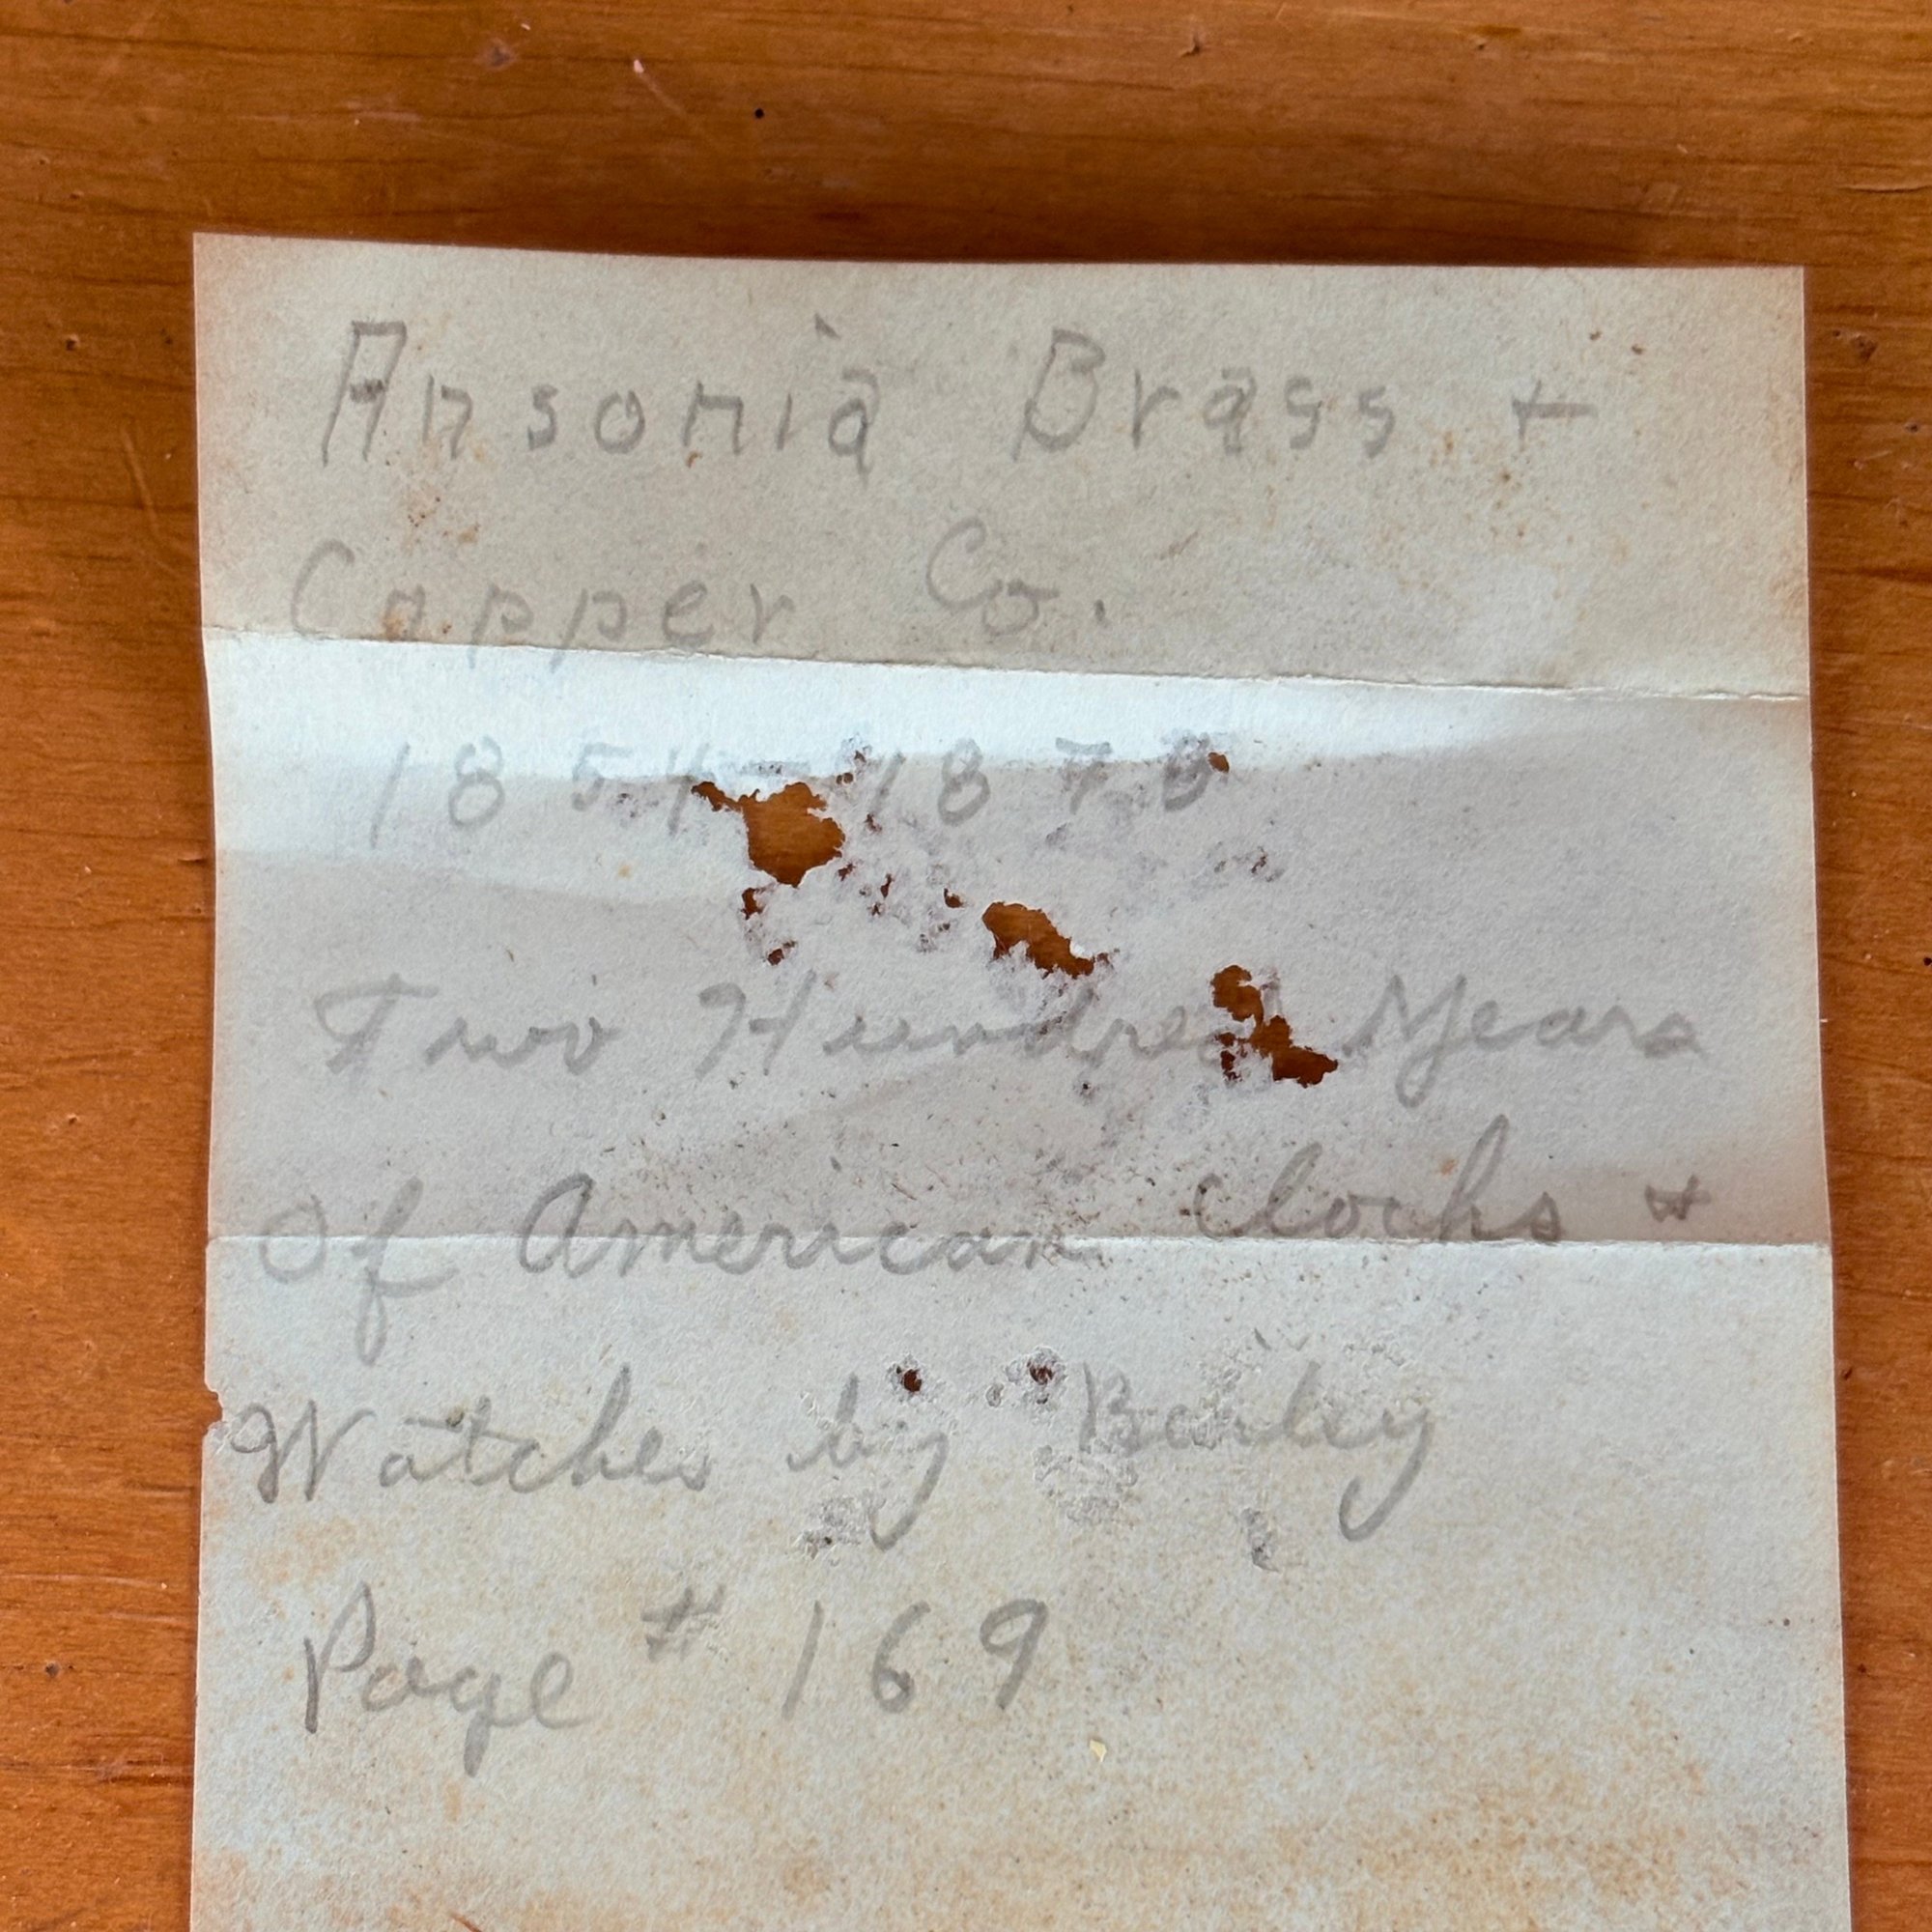 Ansonia Brass +
Copper Co.
1854-1878
Two Hundred Years
Of American Clocks +
Watches by Bailey
Page # 169